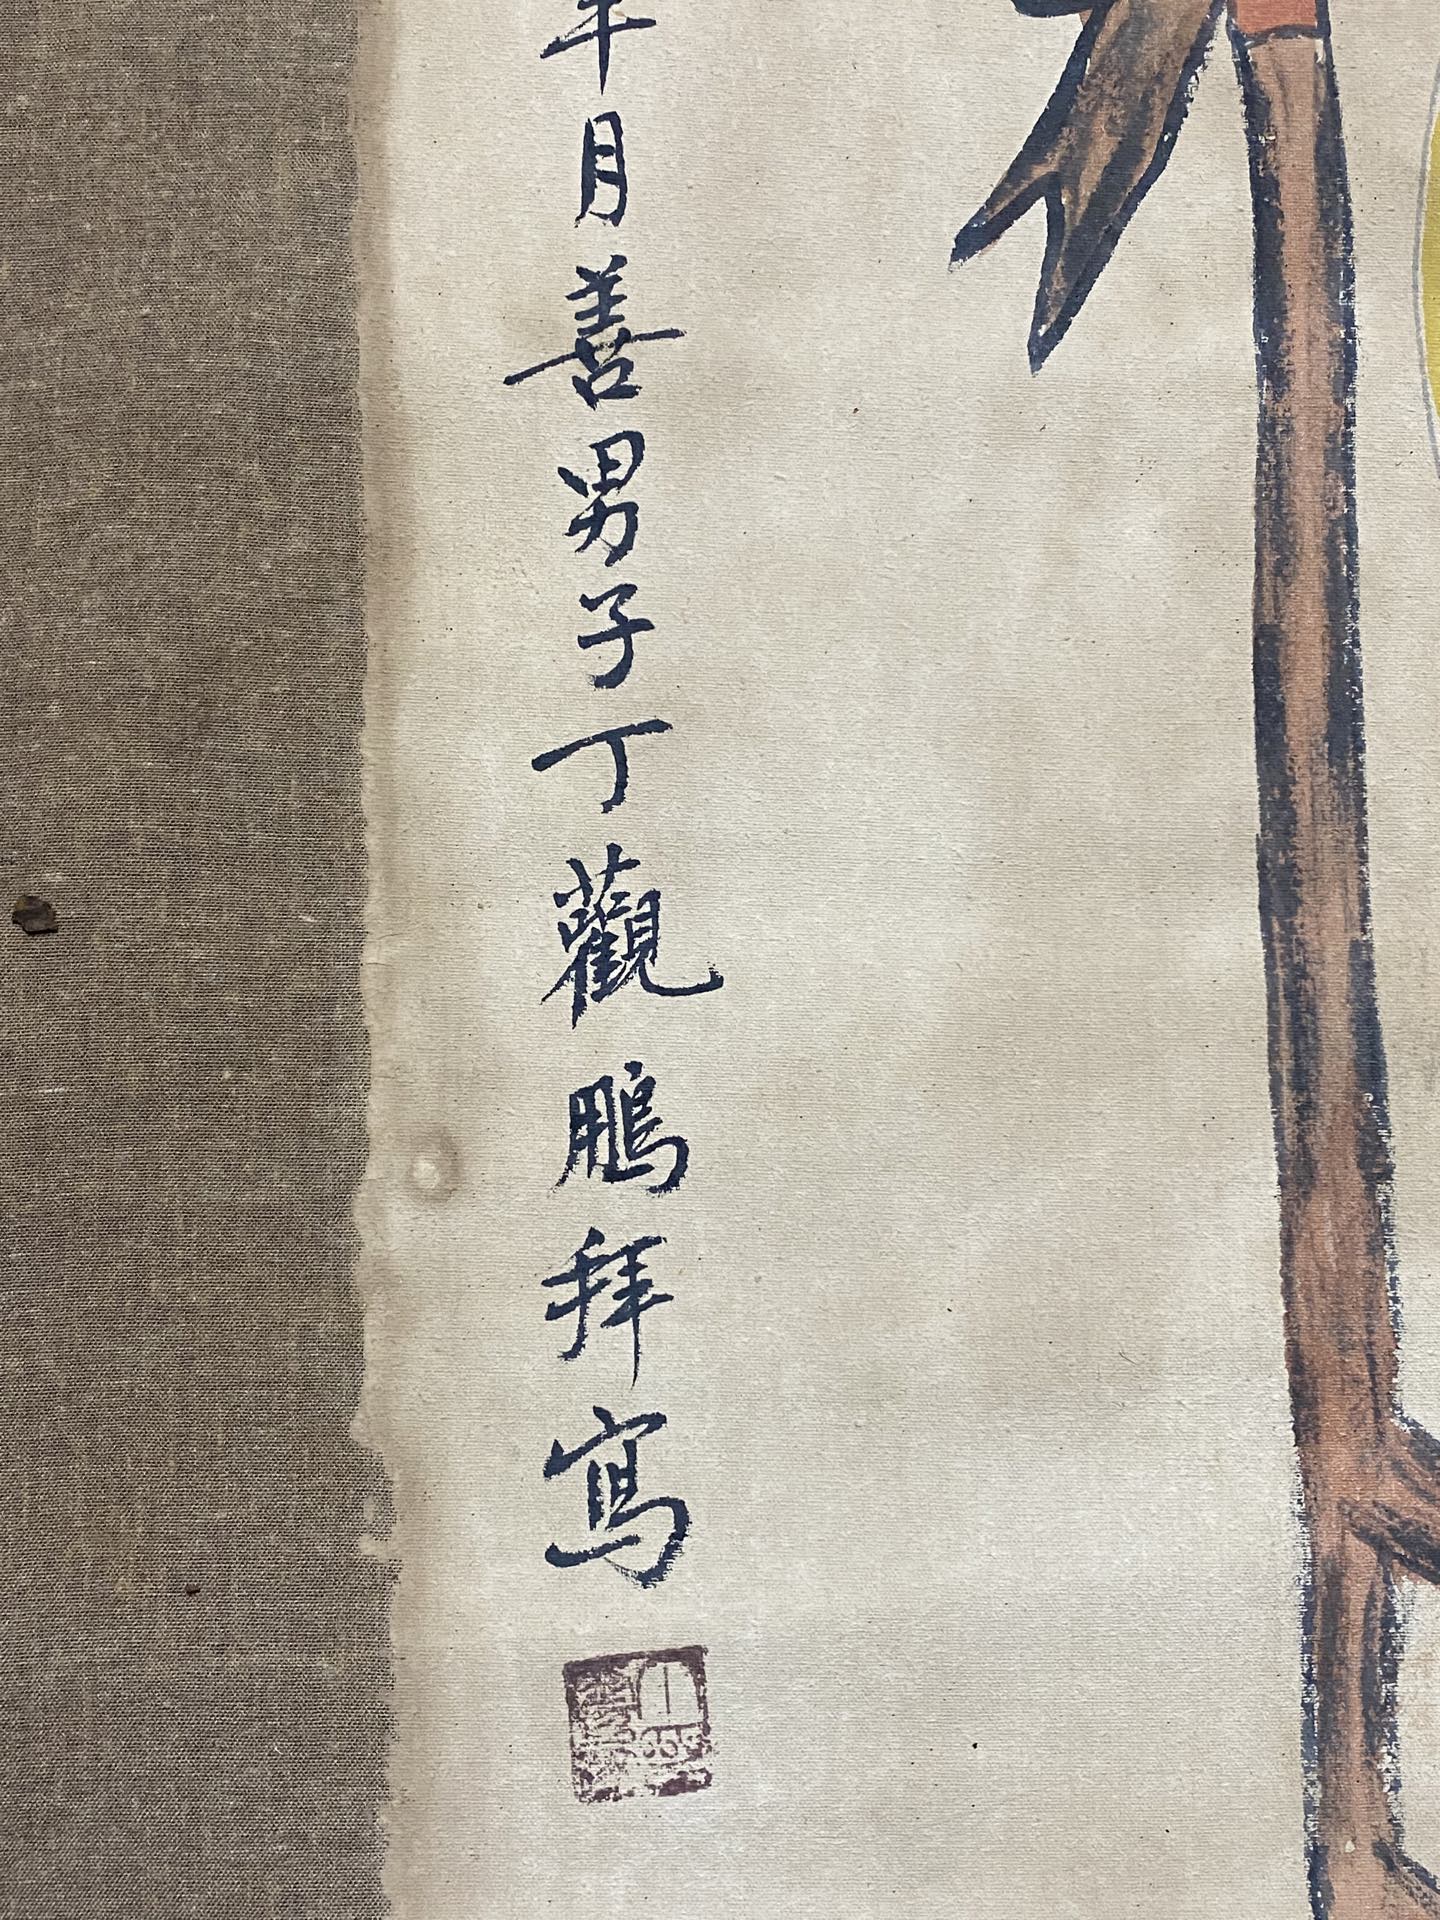 年月善男子丁觀鵬拜寫